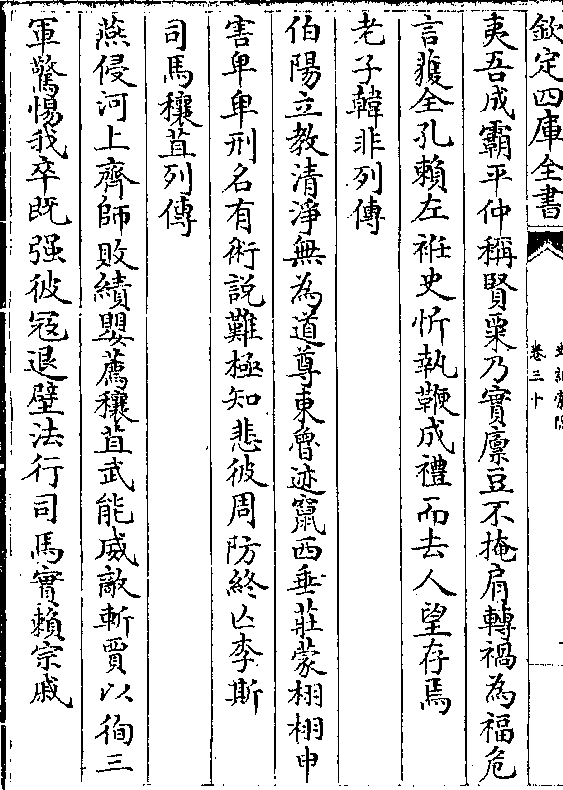 欽定四庫全書
史記索隱
卷三十
夷吾成霸平仲稱賢粟乃實廩豆不掩肩轉禍為福危
言獲全孔賴左袵史忻執鞭成禮而去人望存焉
老子韓非列傳
伯陽立教清淨無為道尊東魯迹竄西垂莊蒙栩栩申
害卑卑刑名有術說難極知悲彼周防終亡李斯
司馬穰苴列傳
燕侵河上齊師敗績嬰薦穰苴武能威敵斬賈以徇三
軍驚惕我卒既强彼冦退壁法行司馬實賴宗戚